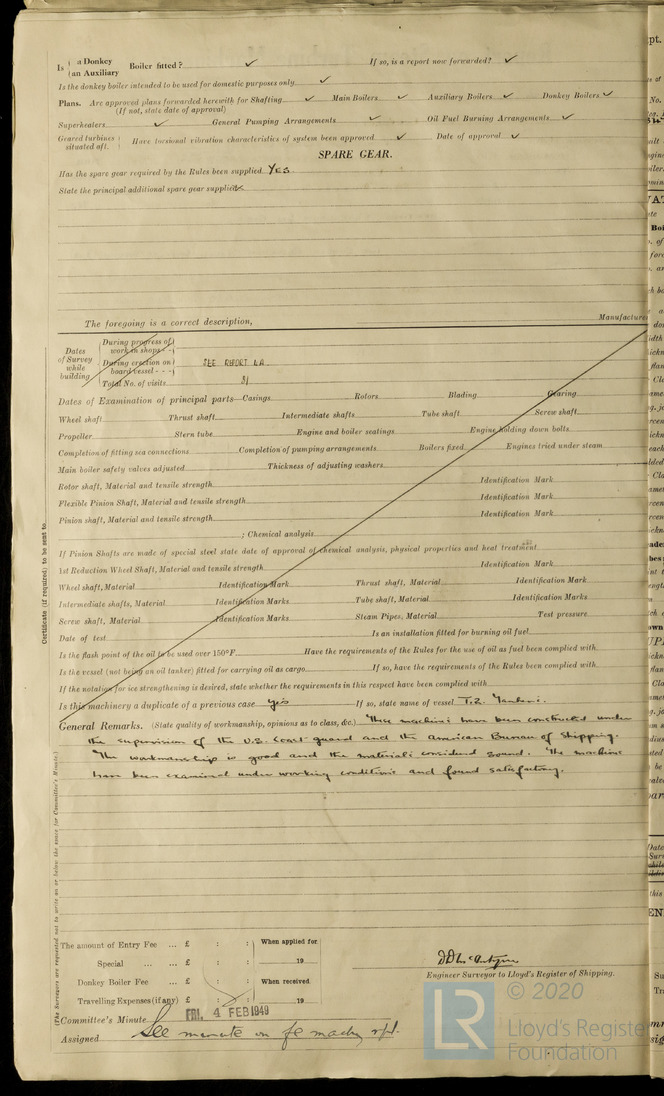 Is { a Donkey / an Auxiliary } Boiler fitted? ✓ If so, is a report now forwarded? ✓
Is the donkey boiler intended to be used for domestic purposes only ✓
Plans. Are approved plans forwarded herewith for Shafting ✓ Main Boilers ✓ Auxiliary Boilers ✓ Donkey Boilers ✓
(If not, state date of approval)
Superheaters ✓ General Pumping Arrangements ✓ Oil Fuel Burning Arrangements ✓
Geared turbines situated aft. } Have torsional vibration characteristics of system been approved ✓ Date of approval ✓
SPARE GEAR.
Has the spare gear required by the Rules been supplied YES.
State the principal additional spare gear supplied
The foregoing is a correct description, Manufacture
Dates of Survey while building
During progress of work in shops - -
During erection on board vessel - - - SEE REPORT 4A
Total No. of visits
Dates of Examination of principal parts—Casings Rotors Blading Gearing
Wheel shaft Thrust shaft Intermediate shafts Tube shaft Screw shaft
Propeller Stern tube Engine and boiler seatings Engine holding down bolts
Completion of fitting sea connections Completion of pumping arrangements Boilers fixed Engines tried under steam
Main boiler safety valves adjusted Thickness of adjusting washers
Rotor shaft, Material and tensile strength Identification Mark
Flexible Pinion Shaft, Material and tensile strength Identification Mark
Pinion shaft, Material and tensile strength Identification Mark
; Chemical analysis
If Pinion Shafts are made of special steel state date of approval of chemical analysis, physical properties and heat treatment
1st Reduction Wheel Shaft, Material and tensile strength Identification Mark
Wheel shaft, Material Identification Mark Thrust shaft, Material Identification Mark
Intermediate shafts, Material Identification Marks Tube shaft, Material Identification Marks
Screw shaft, Material Identification Marks Steam Pipes, Material Test pressure
Date of test Is an installation fitted for burning oil fuel
Is the flash point of the oil to be used over 150°F. Have the requirements of the Rules for the use of oil as fuel been complied with
Is the vessel (not being an oil tanker) fitted for carrying oil as cargo If so, have the requirements of the Rules been complied with
If the notation for ice strengthening is desired, state whether the requirements in this respect have been complied with
Is this machinery a duplicate of a previous case yes If so, state name of vessel
General Remarks. (State quality of workmanship, opinions as to class, &c.) These machines have been constructed under
the supervision of the U.S. Coast guard and the American Bureau of Shipping.
The workmanship is good and the materials considered sound. The machines
have been examined under working conditions and found satisfactory.
Certificate (if required) to be sent to
(The Surveyors are requested not to write on or below the space for Committee's Minute.)
The amount of Entry Fee ... £ : : When applied for
Special ... ... £ : : 19
Donkey Boiler Fee ... £ : : When received
Travelling Expenses (if any) £ : : 19
Engineer Surveyor to Lloyd's Register of Shipping.
Committee's Minute FRI. 4 FEB 1949
Assigned See minute on
LR
© 2020
Lloyd's Register
Foundation